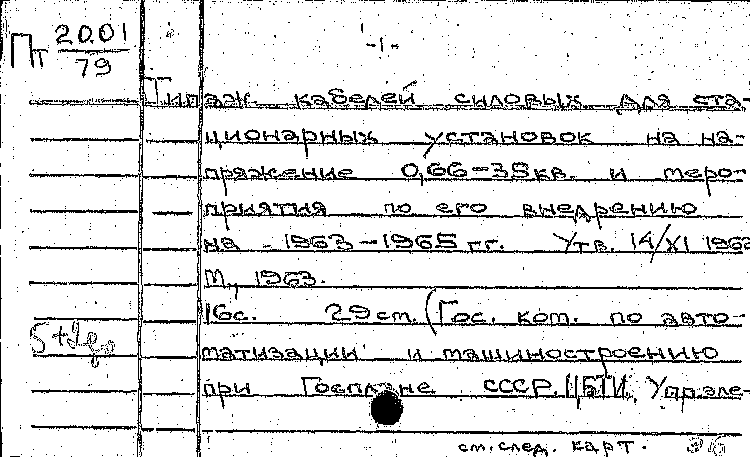 Пт 2001/79
-1-
Типаж кабелей силовых для ста-
ционарных установок на на-
пряжение 0,66-35кв. и меро-
приятия по его внедрению
на - 1963-1965 гг. Утв. 14/XI 1962
М., 1963.
16с. 29см. (Гос. ком. по авто-
матизации и машиностроению
при Госплане СССР. ЦБТИ. Управле-
см. след. карт.